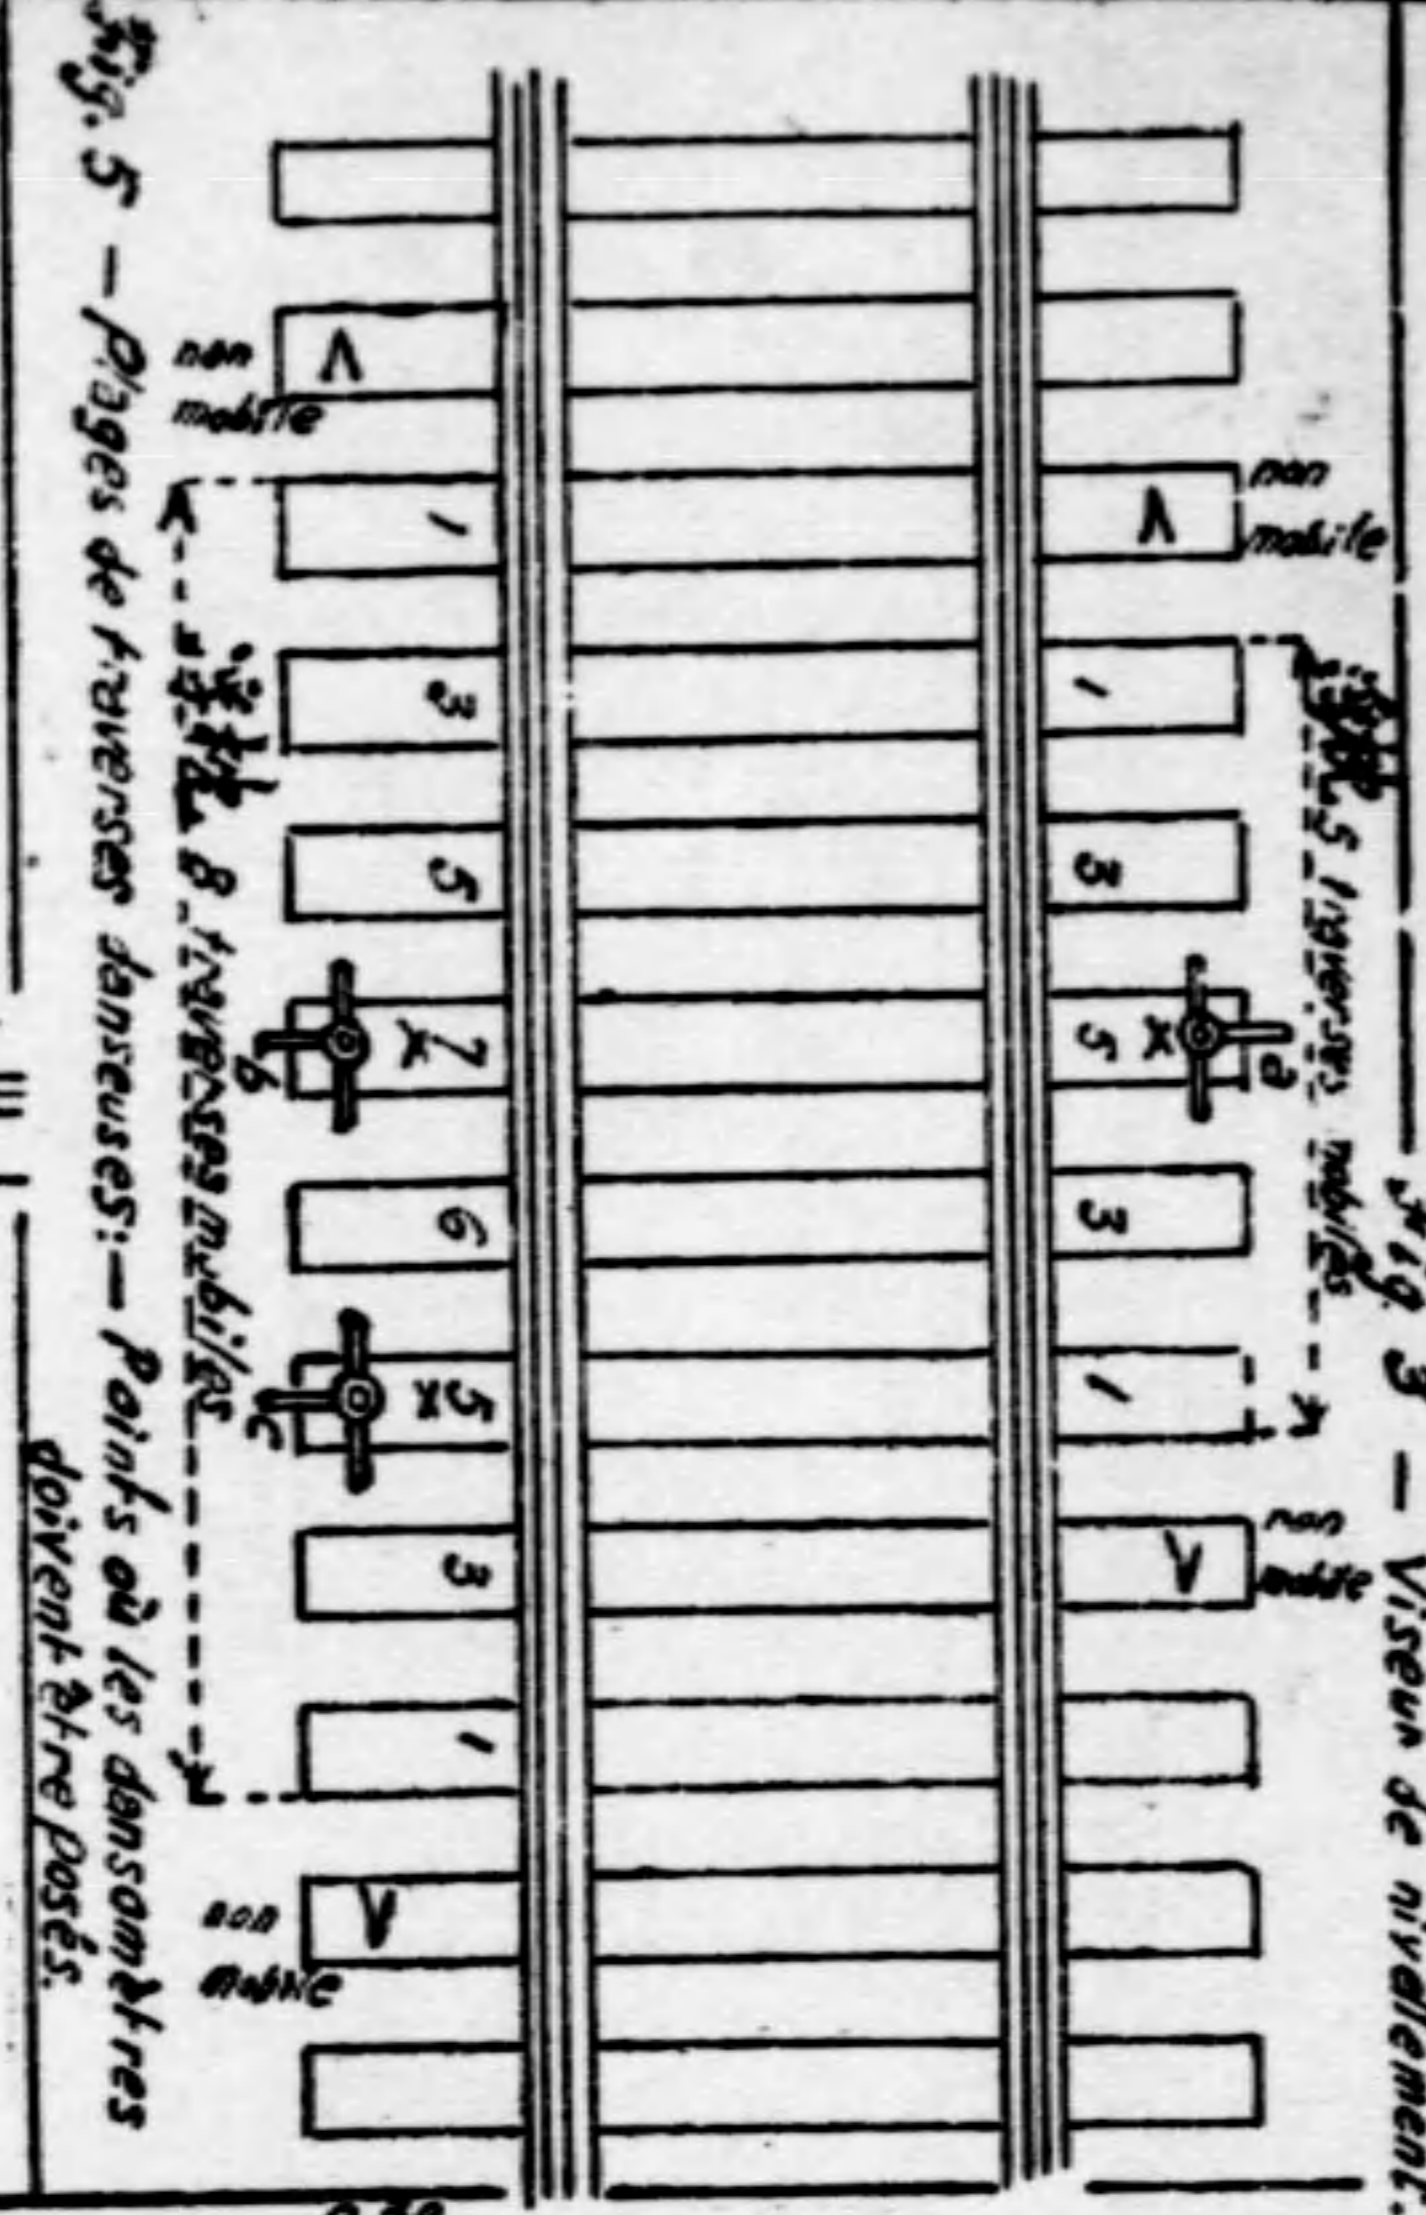 Fig. 3 — Viseur de nivelement.
non
mobile
5 traverses mobiles
non
mobile
a
1
3
5 x
3
1
V
V
1
3
5
7 x
6
5 x
3
1
V
V
b
c
non
mobile
8 traverses mobiles
non
mobile
Fig. 5 — Plages de traverses danseuses:— Points où les dansomètres
doivent être posés.